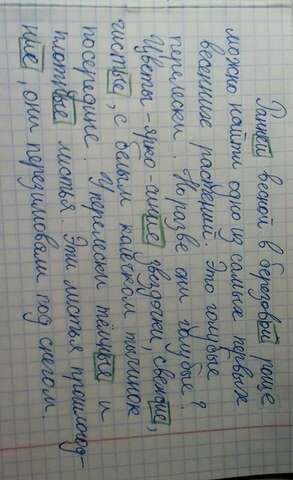 Ранней весной в березовой роще
можно найти одно из самых первых
весенних растений. Это голубые
перелески. Но разве они голубые?
Цветы - ярко-синие звездочки, светлые,
чистые, с белым кончиком тычинок
посередине. У перелески тёмные и
плотные листья. Эти листья прошлогод-
ние, они перезимовали под снегом.